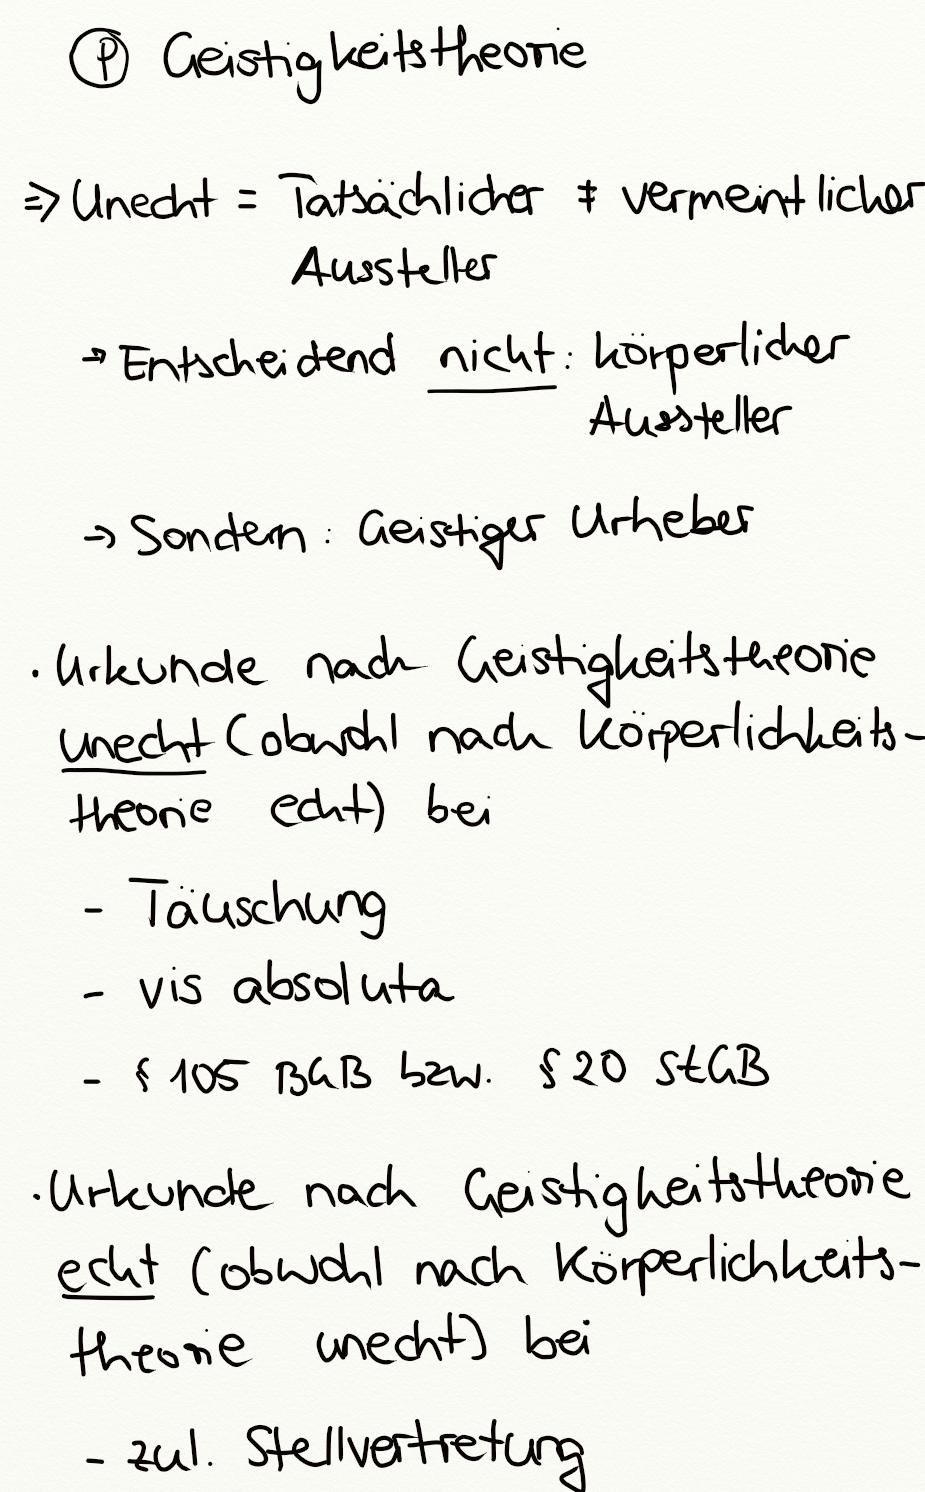 Ⓟ Geistigkeitstheorie
=> Unecht = Tatsächlicher ≠ vermeintlicher
Aussteller
→ Entscheidend nicht: körperlicher
Aussteller
→ Sondern: Geistiger Urheber
· Urkunde nach Geistigkeitstheorie
unecht (obwohl nach Körperlichkeits-
theorie echt) bei
- Täuschung
- vis absoluta
- § 105 BGB bzw. § 20 StGB
· Urkunde nach Geistigkeitstheorie
echt (obwohl nach Körperlichkeits-
theorie unecht) bei
- zul. Stellvertretung